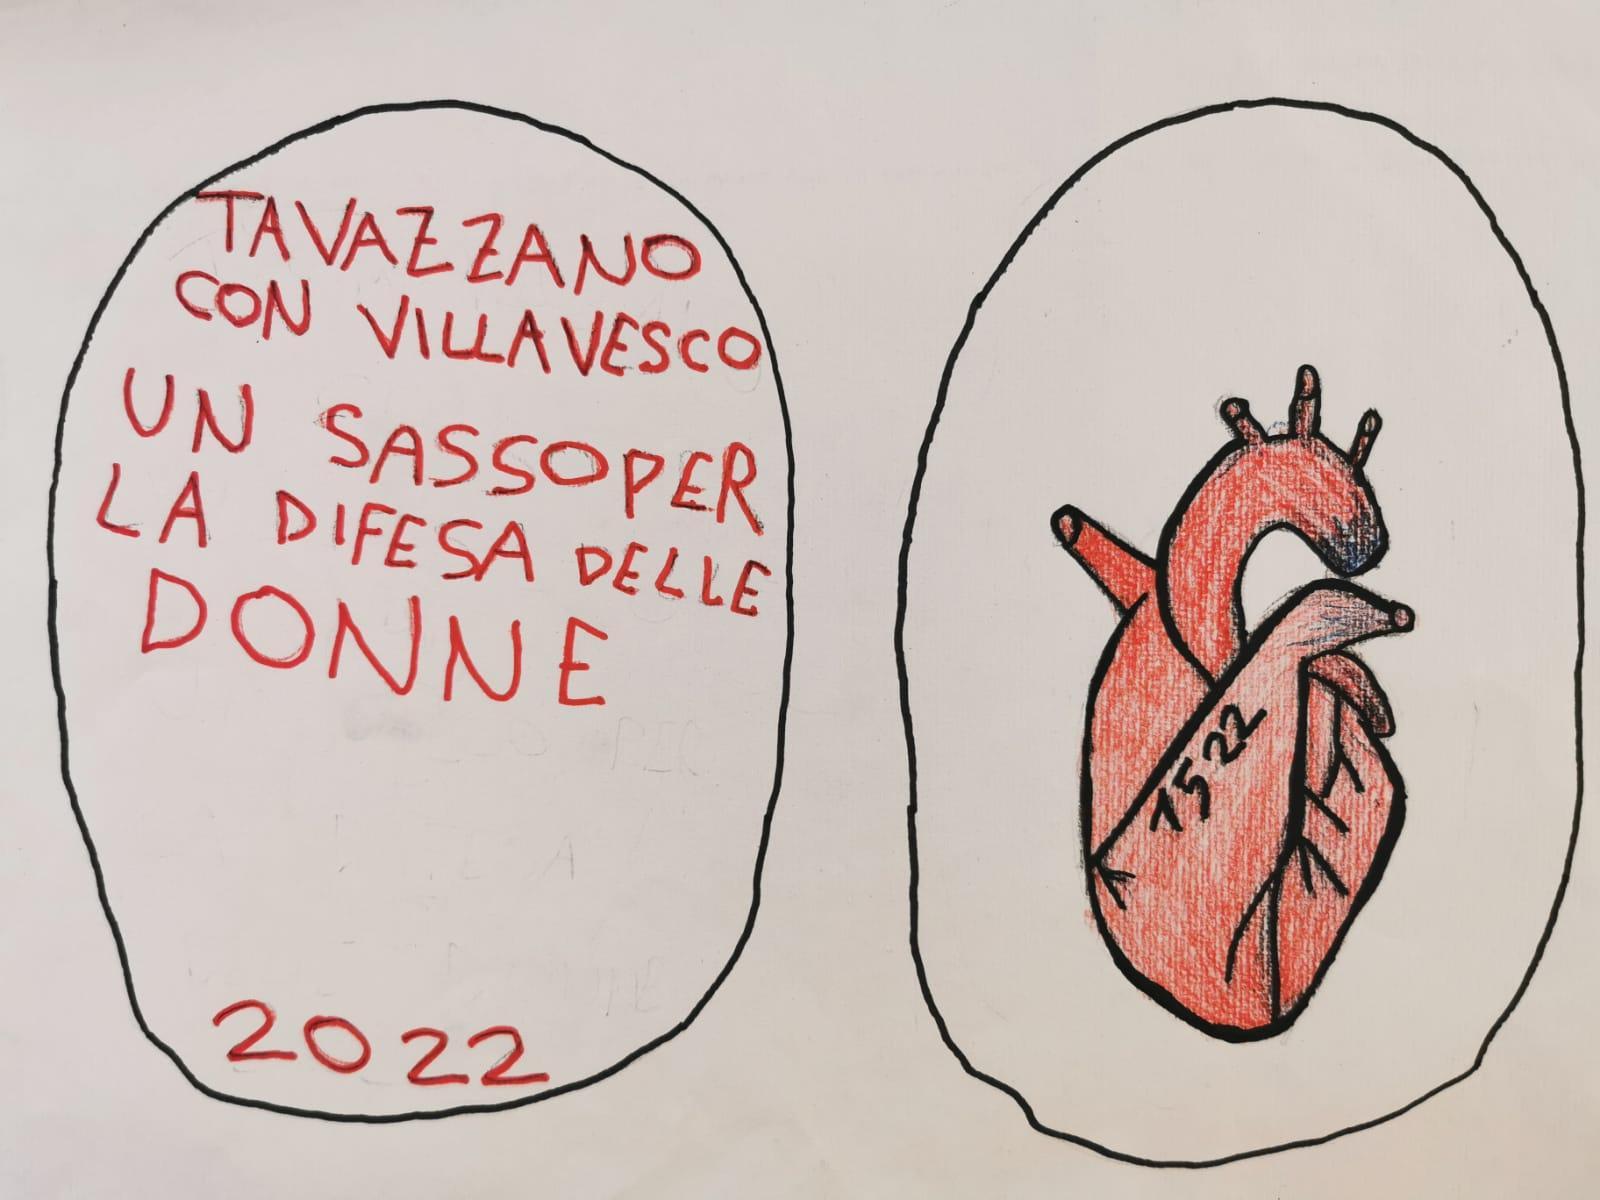 TAVAZZANO
CON VILLAVESCO
UN SASSO PER
LA DIFESA DELLE
DONNE
2022
1522